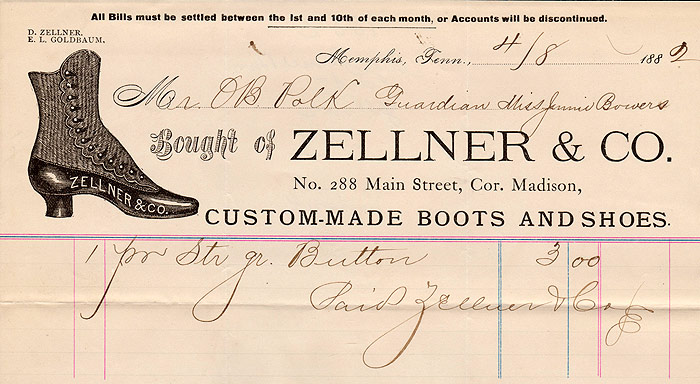 All Bills must be settled between the 1st and 10th of each month, or Accounts will be discontinued.
D. ZELLNER.
E. L. GOLDBAUM.
Memphis, Tenn., 4/8 1882
Mr. OB Polk Guardian Miss Jennie Bowers
Bought of ZELLNER & CO.
No. 288 Main Street, Cor. Madison,
ZELLNER & CO.
CUSTOM-MADE BOOTS AND SHOES.
1 pr Str gr. Button 3 00
Paid Zellner & Co